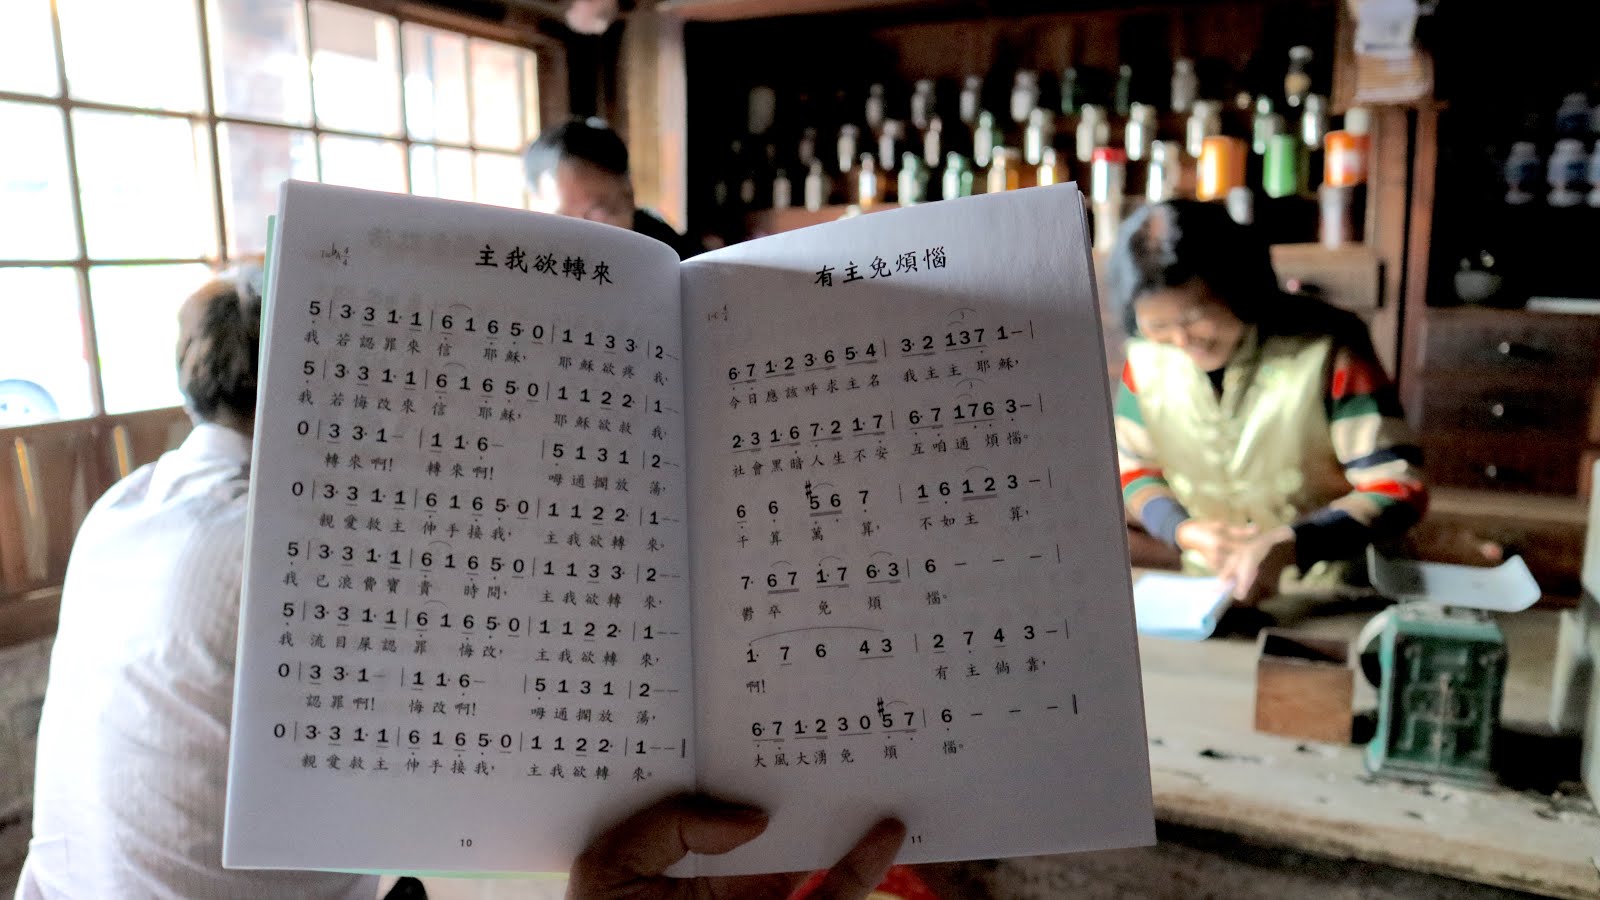 主我欲轉來
5|3· 3 1· 1|6 1 6 5· 0|1 1 3 3·|2--
我 若認罪來信 耶穌， 耶穌欲疼 我，
5|3· 3 1· 1|6 1 6 5· 0|1 1 2 2·|1--
我 若悔改來信 耶穌， 耶穌欲救 我，
0|3 3· 1-|1 1· 6-|5 1 3 1|2--
轉來啊! 轉來啊! 呣通擱放 蕩，
0|3· 3 1· 1|6 1 6 5· 0|1 1 2 2·|1--
親愛救主 伸手接我， 主我欲轉 來。
5|3· 3 1· 1|6 1 6 5· 0|1 1 3 3·|2--
我 已浪費寶貴 時間， 主我欲轉 來，
5|3· 3 1· 1|6 1 6 5· 0|1 1 2 2·|1--
我 流目屎認罪 悔改， 主我欲轉 來，
0|3 3· 1-|1 1· 6-|5 1 3 1|2--
認罪啊! 悔改啊! 呣通擱放 蕩，
0|3· 3 1· 1|6 1 6 5· 0|1 1 2 2·|1--|
親愛救主 伸手接我， 主我欲轉 來。
10
有主免煩惱
6· 7 1· 2 3· 6 5· 4|3· 2 1 3 7 1-|
今日應該呼求主名 我主主耶穌，
2· 3 1· 6 7· 2 1· 7|6· 7 1 7 6 3-|
社會黑暗人生不安 互咱通煩惱。
6 6 #5 6 7|1 6 1 2 3-|
千算萬算， 不如主算，
7· 6 7 1· 7 6· 3|6 - - -|
鬱卒免煩 惱。
1· 7 6 4 3|2 7 4 3-|
啊! 有主倘靠，
6· 7 1· 2 3 0 #5 7|6 - - -|
大風大湧免煩 惱。
11